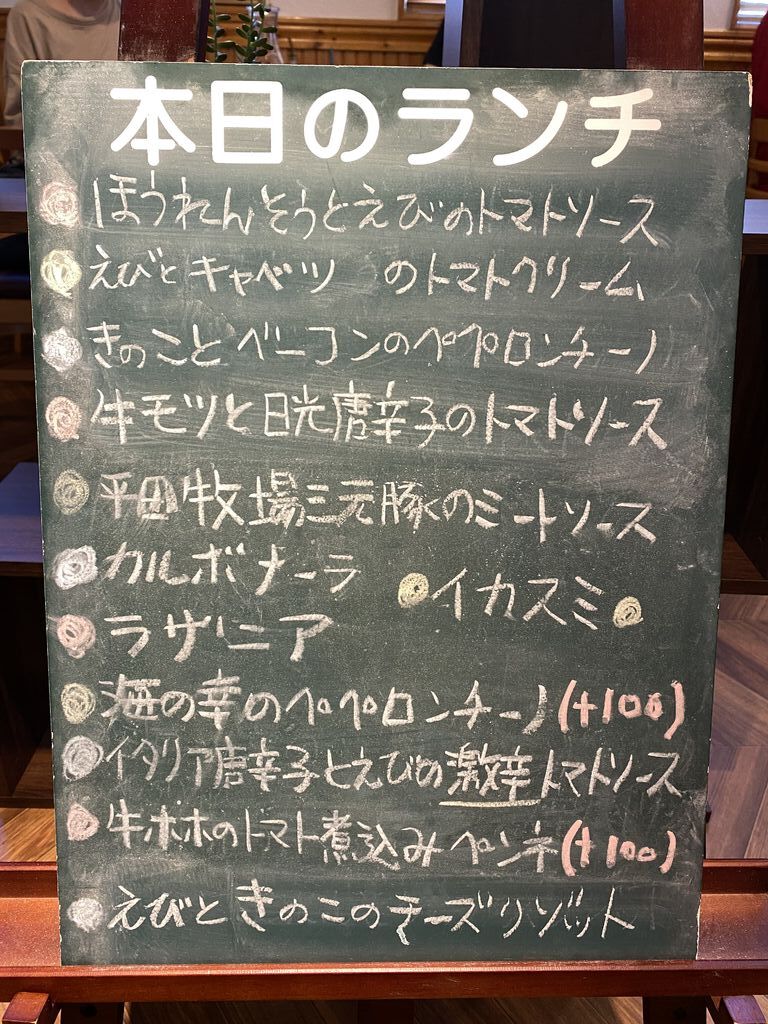 本日のランチ
ほうれんそうとえびのトマトソース
えびとキャベツ のトマトクリーム
きのことベーコンのペペロンチーノ
牛モツと日光唐辛子のトマトソース
平田牧場三元豚のミートソース
カルボナーラ
イカスミ
ラザニア
海の幸のペペロンチーノ(+100)
イタリア唐辛子とえびの激辛トマトソース
牛ホホのトマト煮込みペンネ(+100)
えびときのこのチーズリゾット